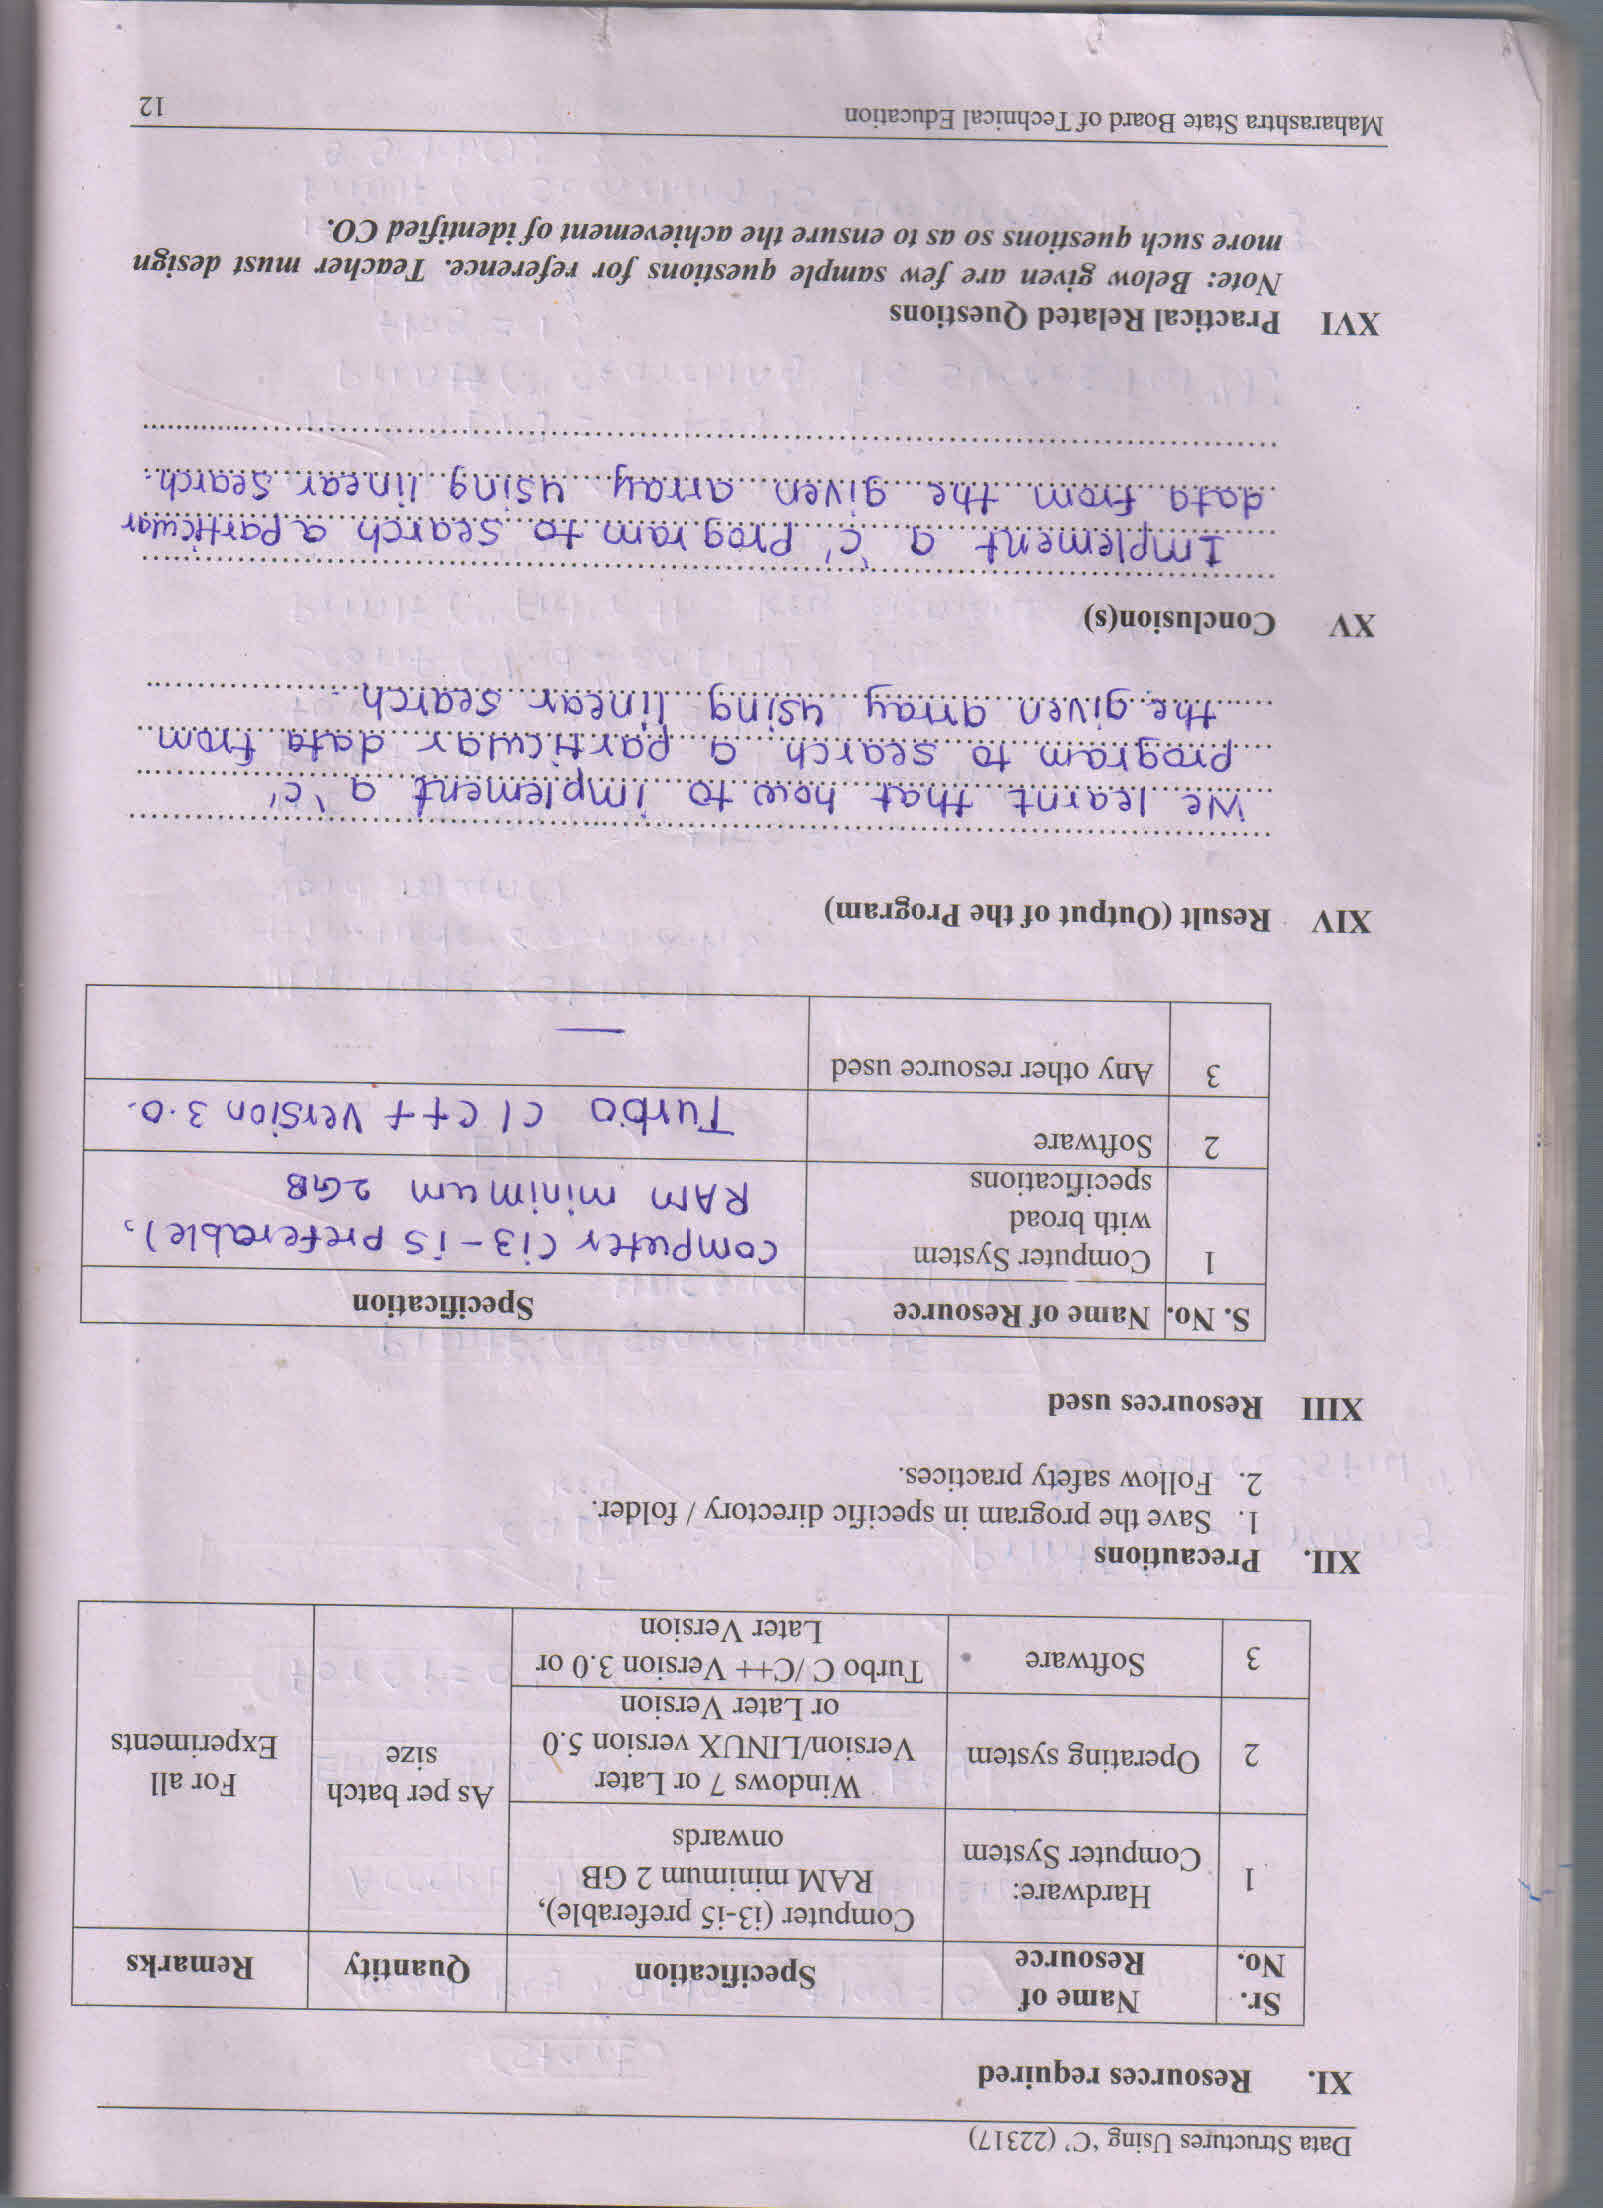 Data Structures Using ‘C’ (22317)
XI. Resources required
Sr. No. Name of Resource Specification Quantity Remarks
1 Hardware: Computer System Computer (i3-i5 preferable), RAM minimum 2 GB onwards As per batch size For all Experiments
2 Operating system Windows 7 or Later Version/LINUX version 5.0 or Later Version
3 Software Turbo C /C++ Version 3.0 or Later Version
XII. Precautions
1. Save the program in specific directory / folder.
2. Follow safety practices.
XIII Resources used
S. No. Name of Resource Specification
1 Computer System with broad specifications Computer (i3-i5 preferable), RAM minimum 2GB
2 Software Turbo C/C++ Version 3.0.
3 Any other resource used —
XIV Result (Output of the Program)
We learnt that how to implement a 'c'
program to search a particular data from
the given array using linear search.
XV Conclusion(s)
Implement a 'c' program to search a particular
data from the given array using linear search.
XVI Practical Related Questions
Note: Below given are few sample questions for reference. Teacher must design
more such questions so as to ensure the achievement of identified CO.
Maharashtra State Board of Technical Education
12